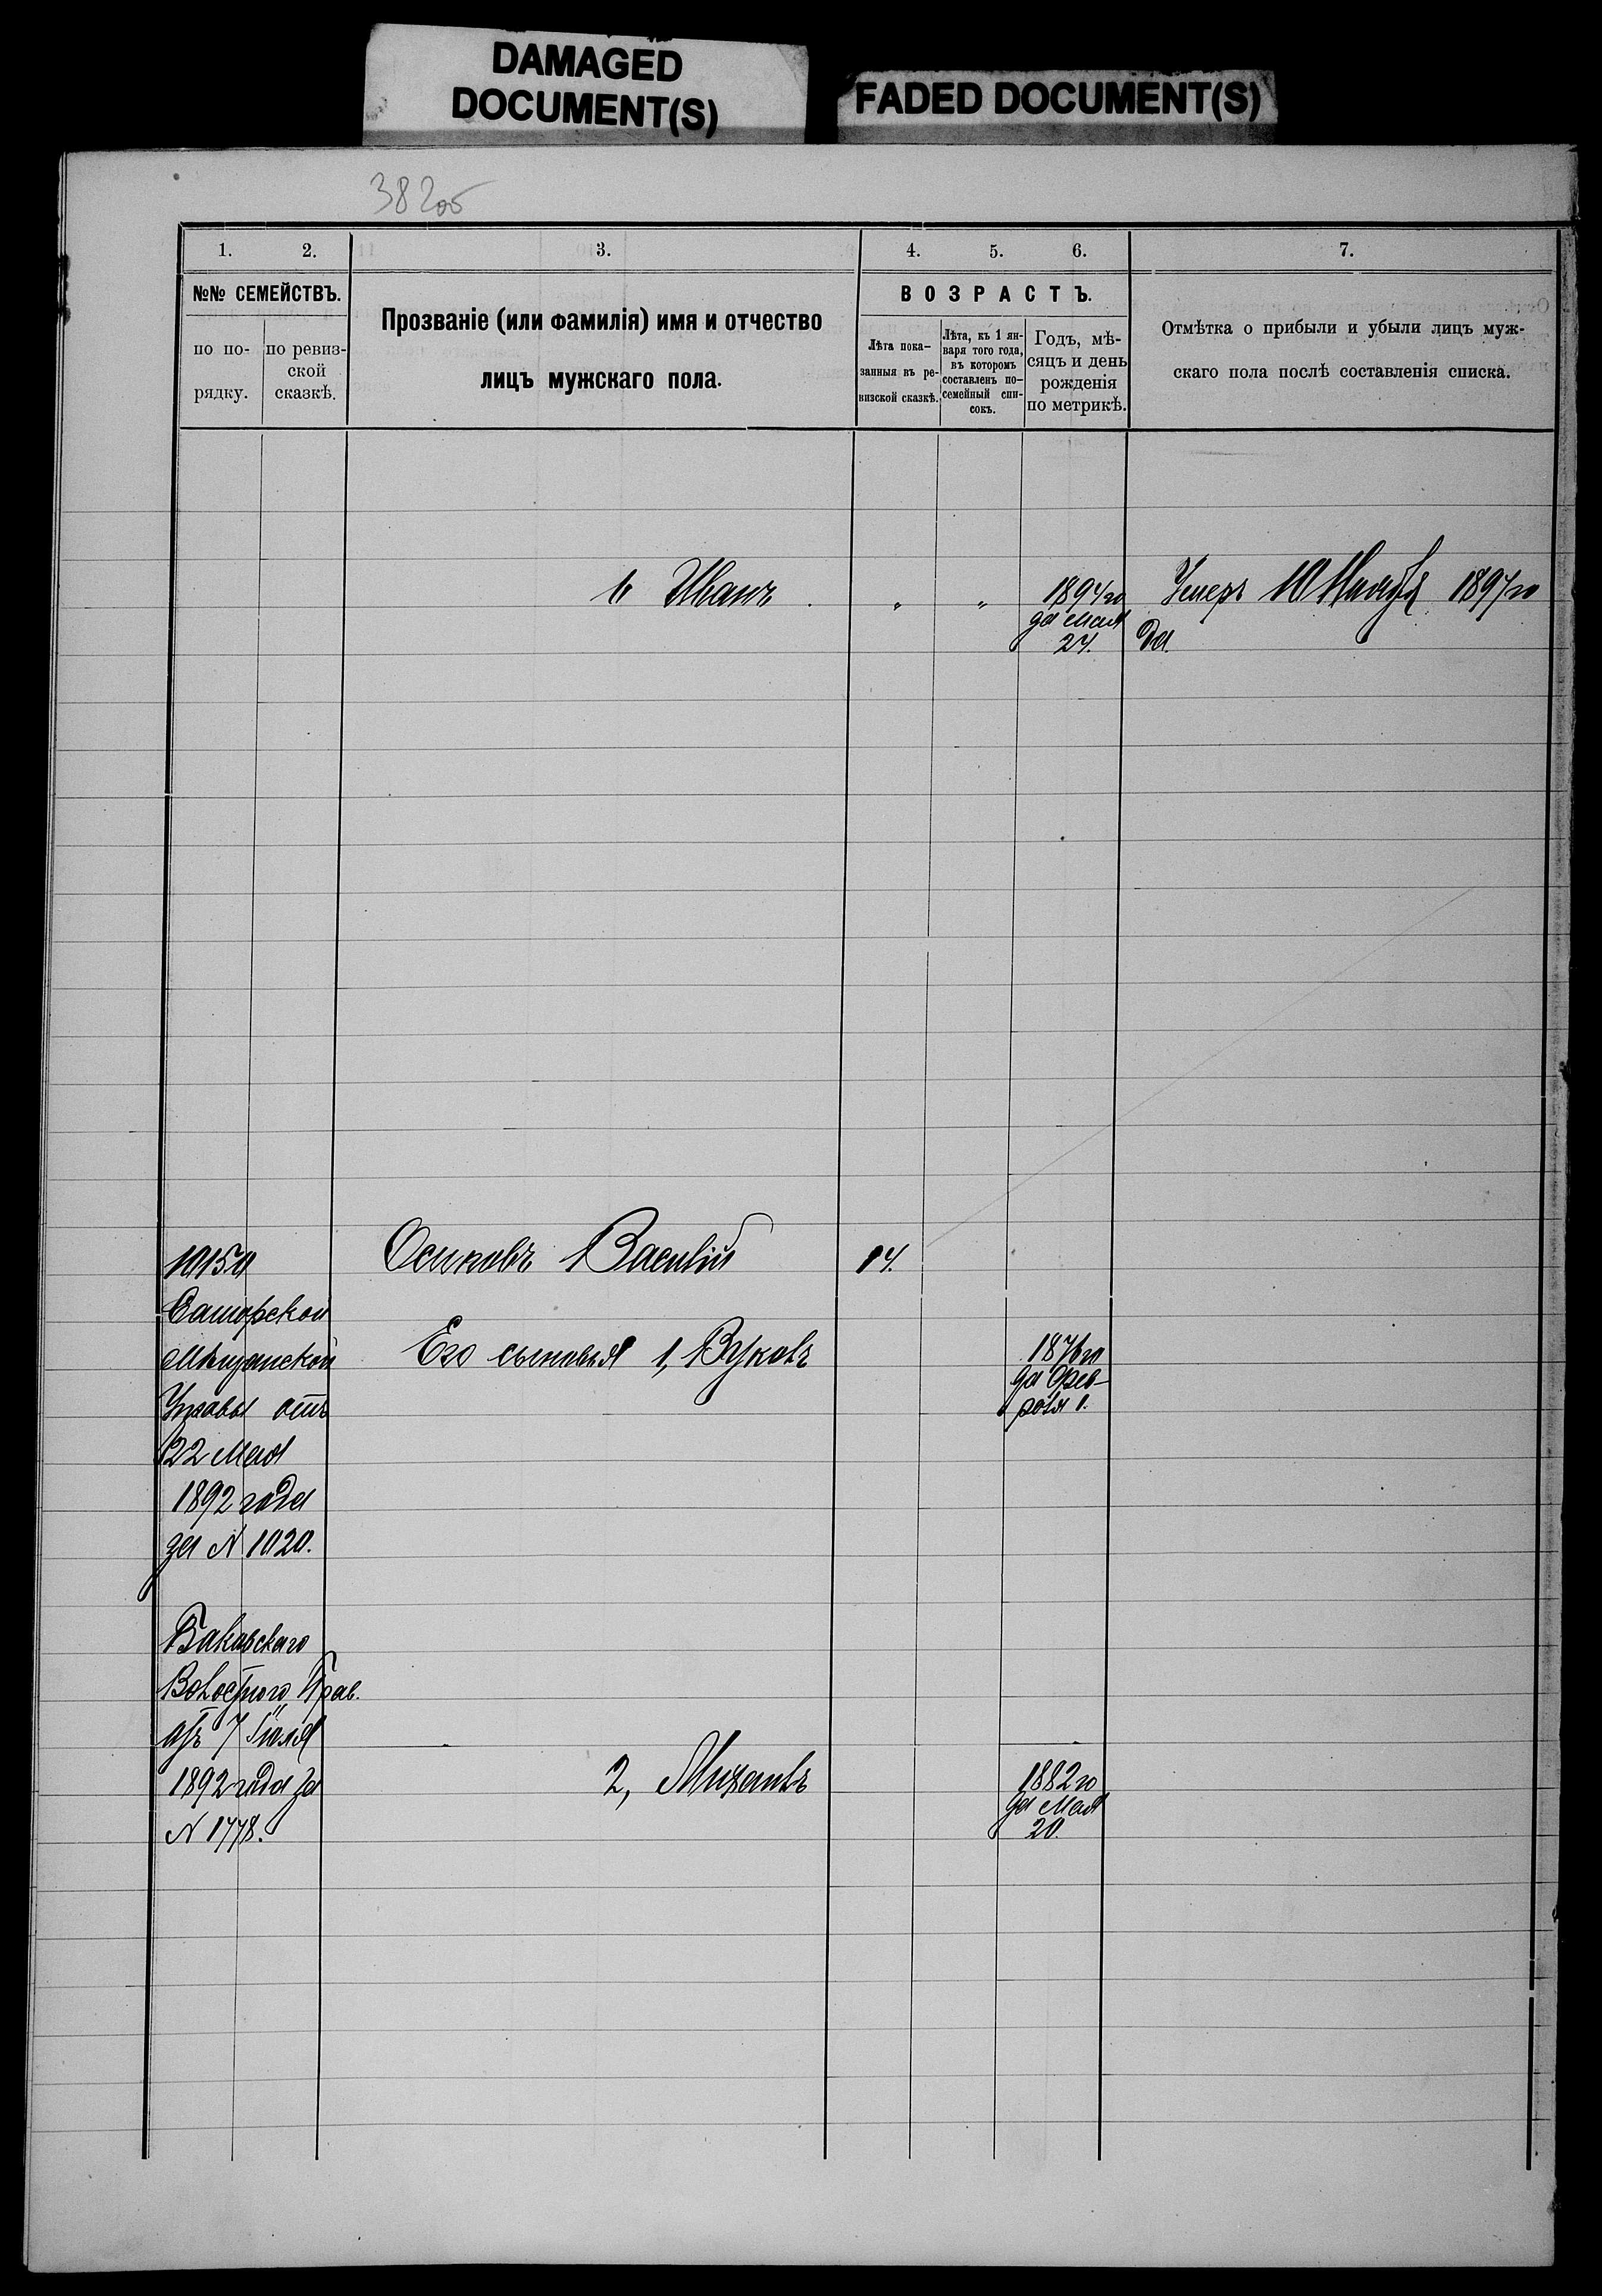 DAMAGED
DOCUMENT(S)
FADED DOCUMENT(S)
382об
1. 2. 3. 4. 5. 6. 7.
№№ СЕМЕЙСТВЪ.
по по-
рядку.
по ревиз-
ской
сказкѣ.
Прозваніе (или фамилія) имя и отчество
лицъ мужскаго пола.
ВОЗРАСТЪ.
Лѣта пока-
занныя въ ре-
визской сказкѣ.
Лѣта, къ 1 ян-
варя того года,
въ которомъ
составленъ по-
семейный спи-
сокъ.
Годъ, мѣ-
сяцъ и день
рожденія
по метрикѣ.
Отмѣтка о прибыли и убыли лицъ муж-
скаго пола послѣ составленія списка.
Иванъ " " 1897 го
да Мая
27.
Умеръ 10 Ноября 1897 го
да.
Осиповъ Василій 17.
10150
Мѣщанской
Управы отъ
22 Мая
1892 года
за № 1020.
Его сыновья 1, Яковъ
1876 го
да Фев-
раля 1.
Баковскаго
Волостного Прав.
отъ 7 Іюля
1892 года за
№ 1778.
2, Михаилъ
1882 го
да Мая
20.